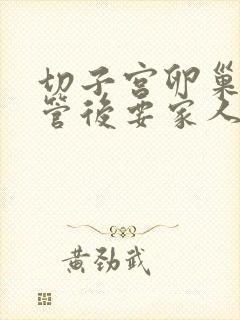 切子宫卵巢
管後要家人
黄劲武